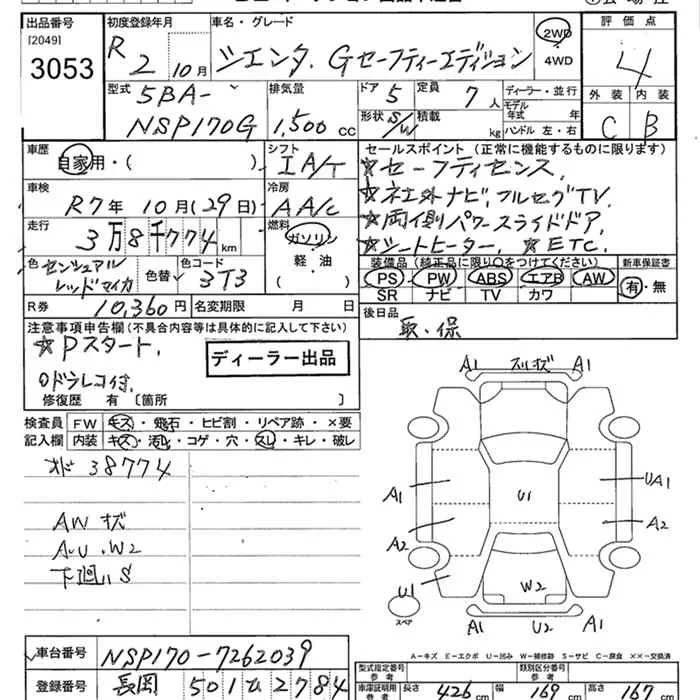 出品番号
[2049]
3053
初度登録年月
R2 10月
車名・グレード
シエンタ Gセーフティーエディション
2WD
4WD
評価点
4
外装 内装
C B
型式
5BA-
NSP170G
排気量
1,500 cc
ドア 5
形状 S/W
定員 7人
積載 kg
ディーラー・並行
モデル年式 年
ハンドル 左・右
車歴
自家用・( )
シフト
IA/T
車検
R7年10月(29日)
冷房
AA/C
走行
3万8千774km
燃料
ガソリン
軽・油
( )
色 センシュアルレッドマイカ
色替
色コード
3T3
R券 10,360円
名変期限 月 日
セールスポイント (正常に機能するものに限ります)
★セーフティセンス,
★ネエ外ナビ,フルセグTV,
★両側パワースライドドア,
★シートヒーター, ★ETC,
装備品(純正品に限り○をつけてください)
PS PW ABS エアB AW
SR ナビ TV カワ
新車保証書
有・無
後日品
取・保
注意事項申告欄(不具合内容等は具体的に記入して下さい)
★Pスタート,
ディーラー出品
○ドラレコ付,
修復歴 有 〔箇所 〕
検査員記入欄
FW キズ・飛石・ヒビ割・リペア跡・×要
内装 キズ・汚レ・コゲ・穴・スレ・キレ・破レ
オド 38774
AW キズ
A・U・W2
下廻りS
A1 スリキズ A1
A1 U1 UA1
A2 A2
U1 W2
スペア
A1 U2 A1
A-キズ E-エクボ U-凹み W-補修跡 S-サビ C-腐食 ××-交換済
車台番号 NSP170-7262039
登録番号 長岡 501ひ2784
型式指定番号
参考
類別区分番号
参考
車庫証明用
参考
長さ 426 cm 幅 169 cm 高さ 167 cm